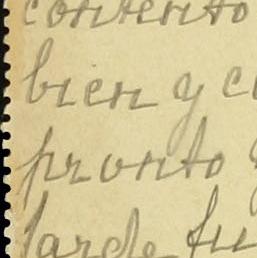 contento
bien y c
pronto
tarde tu